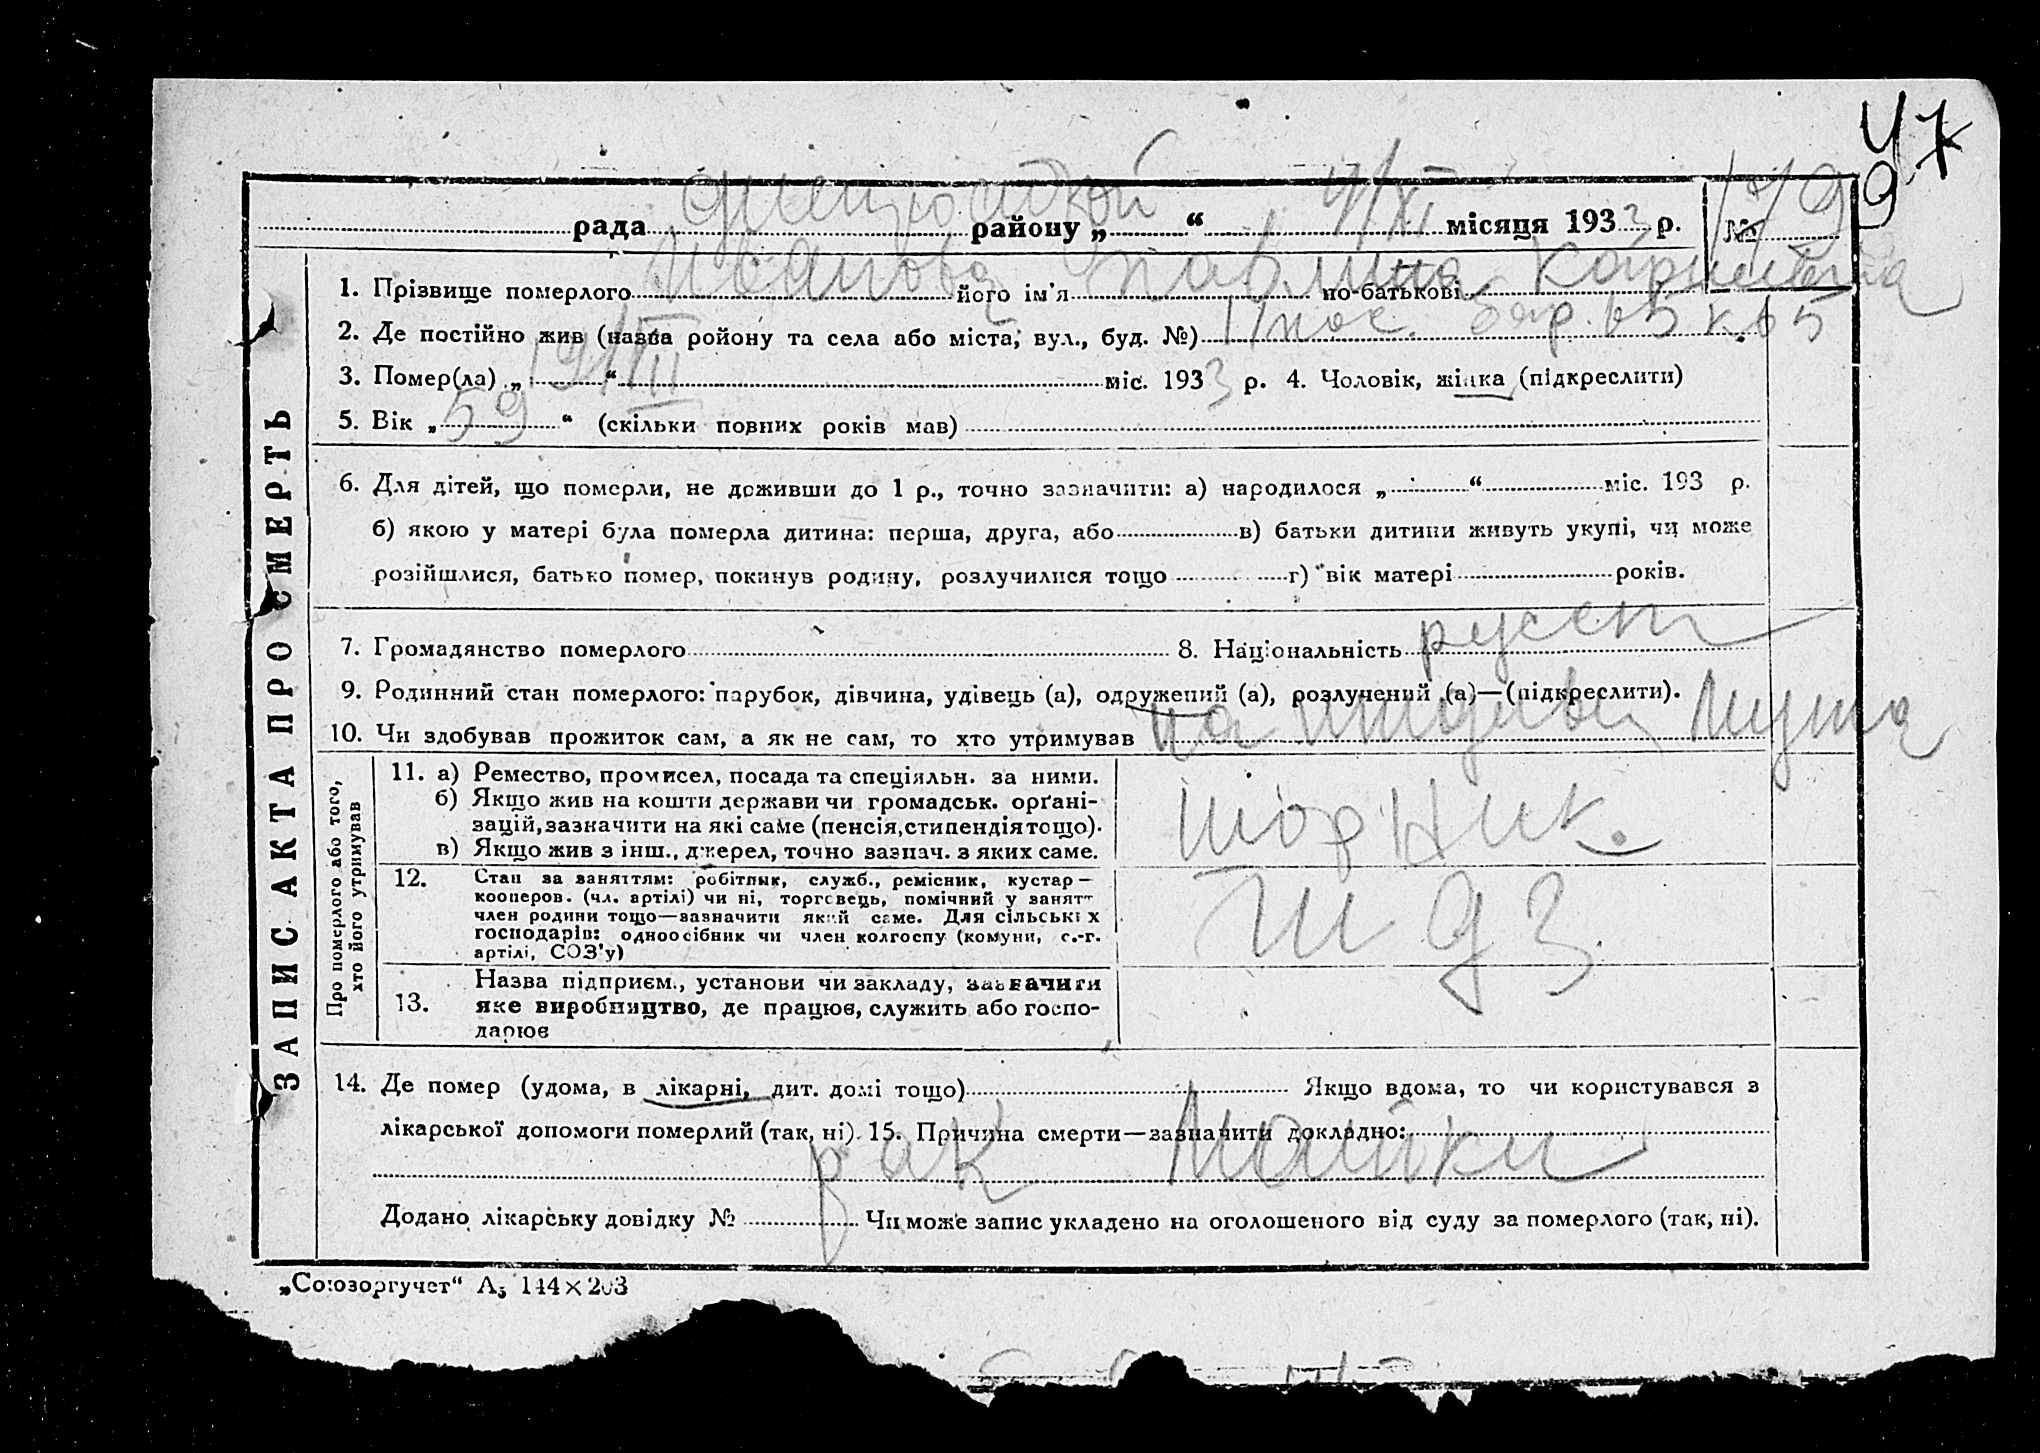 47
9
рада районну „ “ 4/XI місяця 1933 р. № 179
1. Прізвище померлого Иванова його ім'я Павлина по-батькові
2. Де постійно жив (назва ройону та села або міста, вул., буд. №) 11 пос. бар. 65 к. 65
3. Помер(ла) „ 19/III “ міс. 1933 р. 4. Чоловік, жінка (підкреслити)
5. Вік „ 59 “ (скільки повних років мав)
6. Для дітей, що померли, не доживши до 1 р., точно зазначити: а) народилося „ “ міс. 193 р.
б) якою у матері була померла дитина: перша, друга, або в) батьки дитини живуть укупі, чи може
розійшлися, батько помер, покинув родину, розлучилися тощо г) вік матері років.
7. Громадянство померлого 8. Національність русск
9. Родинний стан померлого: парубок, дівчина, удівець (а), одружений (а), розлучений (а)—(підкреслити).
10. Чи здобував прожиток сам, а як не сам, то хто утримував на иждивен мужа
ЗАПИС АКТА ПРО СМЕРТЬ
Про померлого або того,
хто його утримував
11. а) Ремество, промисел, посада та спеціяльн. за ними.
б) Якщо жив на кошти держави чи громадськ. орґані-
зацій, зазначити на які саме (пенсія, стипендія тощо).
в) Якщо жив з інш., джерел, точно зазнач. з яких саме.
шорник.
12. Стан за заняттям: робітник, служб., ремісник, кустар—
кооперов. (чл. артілі) чи ні, торговець, помічний у занятт
член родини тощо—зазначити який саме. Для сільських
господарів: одноосібник чи член колгоспу (комуни, с.-г.
артілі, СОЗ'у)
13. Назва підприєм., установи чи закладу, зазначити
яке виробництво, де працює, служить або госпо-
дарює
14. Де помер (удома, в лікарні, дит. домі тощо) Якщо вдома, то чи користувався з
лікарської допомоги померлий (так, ні) 15. Причина смерти—зазначити докладно:
рак матки
Додано лікарську довідку № Чи може запис укладено на оголошеного від суду за померлого (так, ні).
„Союзоргучет“ А5 144×203